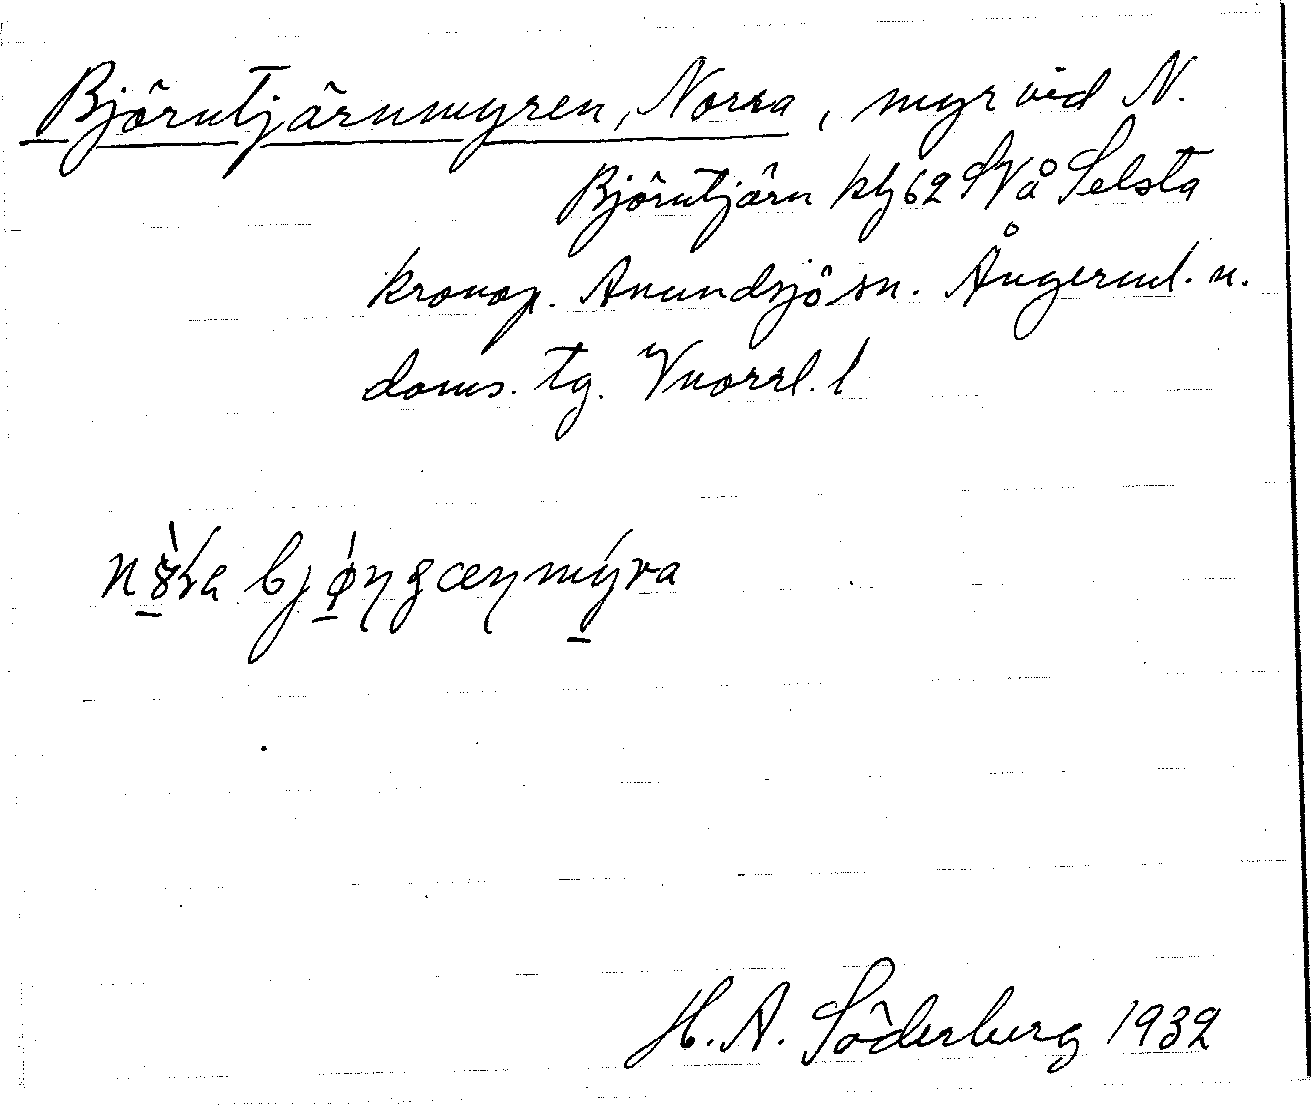 Björntjärnmyren, Norra, myr vid N.
Björntjärn kbl 62 SVå Selsta
kronop. Anundsjö sn. Ångerml. n.
doms. tg. Vnorrl. l
bjøɳʒœɳmýra
H. A. Söderberg 1932